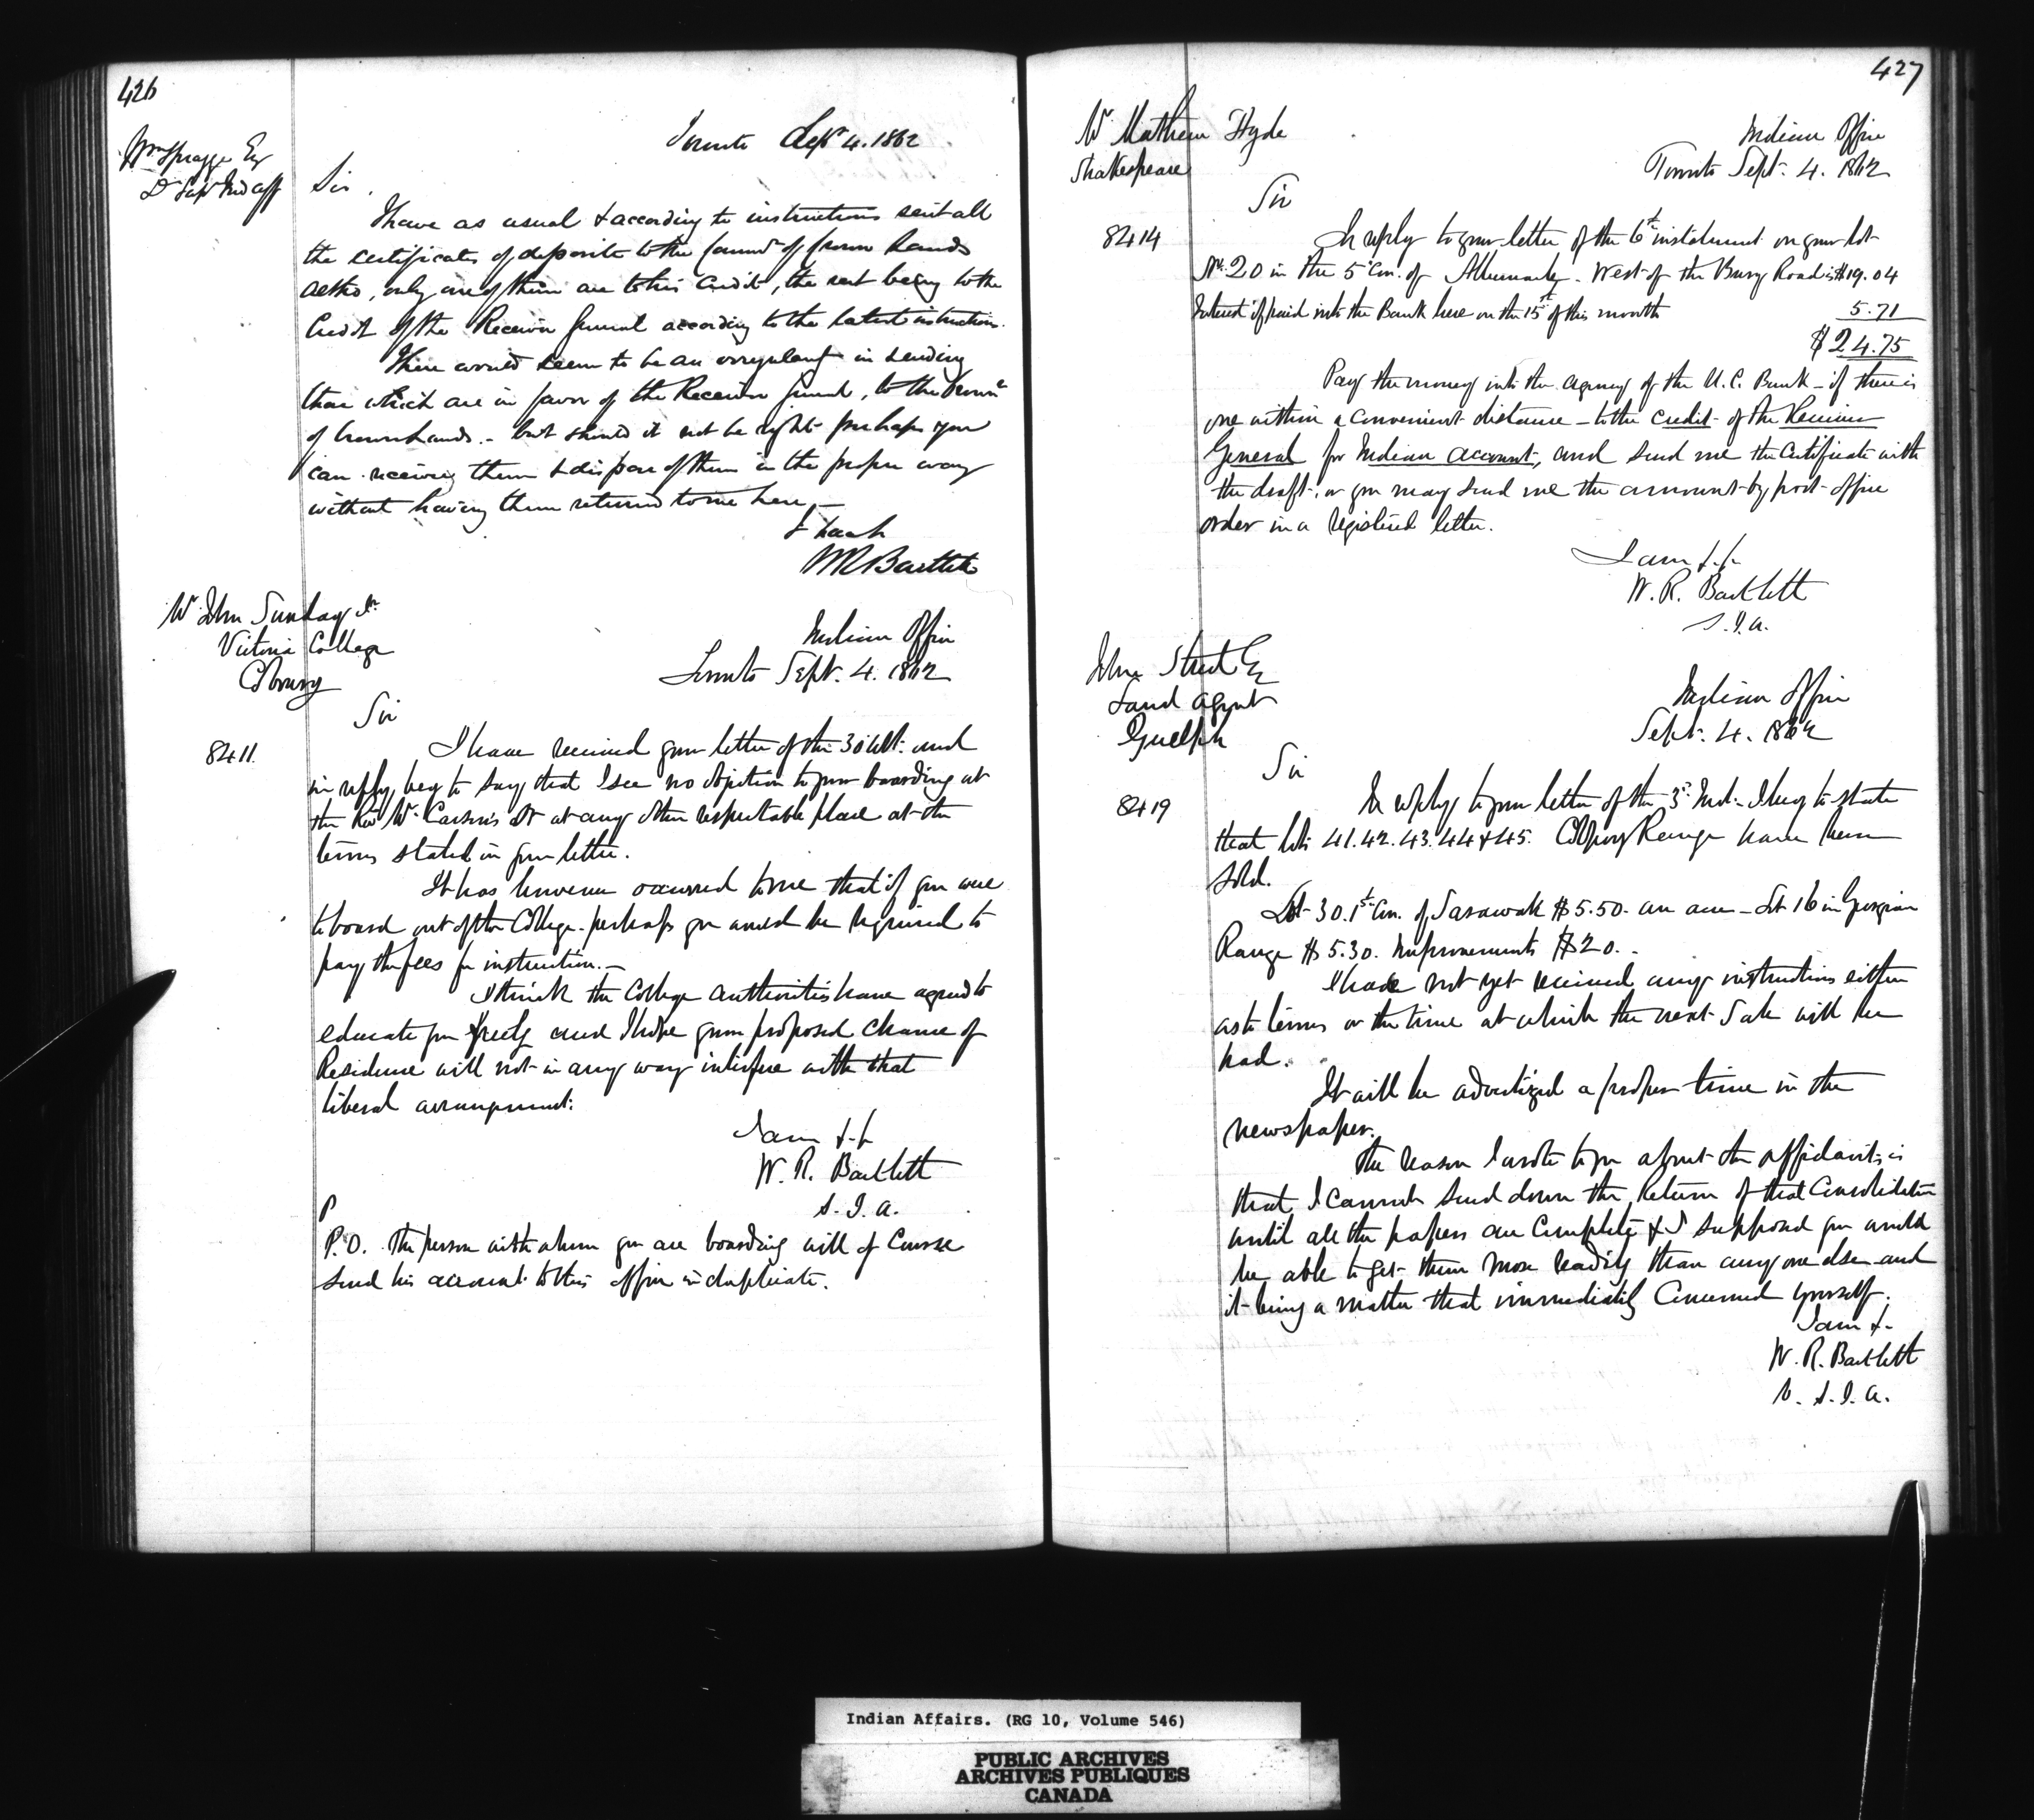 426
Wm Spragge Esq
Dy Supt Ind Aff
Toronto Sept 4. 1862
Sir.
I have as usual & according to instructions sent all
the certificates of deposite to the Commr of Crown Lands
altho, only one of them are to his Credit, the rest being to the
Credit of the Receiver General according to the latest instructions.
There would seem to be an irregularity in sending
those which are in favor of the Receiver General, to the Commr
of Crown Lands. - but should it not be right perhaps you
can receiving them & dispose of them in the proper way
without having them returned to me here. -
I have &
W R Bartlett
Mr John Sunday Jr.
Victoria College
Cobourg
Indian Office
Toronto Sept. 4. 1862
Sir
8411.
I have received your letter of the 30 Ult. and
in reply, beg to say that I see no objection to your boarding at
the Revd Mr. Carson's or at any other respectable place at the
terms stated in your letter.
It has however occurred to me that if you were
to board out of the College - perhaps you would be required to
pay the fees for instruction. -
I think the College authorities have agreed to
educate you freely and I hope your proposed Chance of
Residence will not in any way interfere with that
liberal arrangement.
I am &.&
W. R. Bartlett
S. I. A.
P
P.O. The person with whom you are boarding will of Course
send his account to this office in duplicate.
427
Mr Mathew Hyde
Shakespeare
Indian Office
Toronto Sept. 4. 1862
Sir
8414
In reply to your letter of the 6th instalment on your lot
No. 20 in the 5th Con. of Albemarle - West of the Bury Road is $19.04
Interest if paid into the Bank here on the 15th of this month 5.71
$24.75
Pay the money into the agency of the U.C. Bank - if there is
one within a convenient distance - to the credit of the Receiver
General for Indian account, and send me the Certificate with
the draft, or you may send me the amount by post-office
order in a registered letter.
I am &.&
W. R. Bartlett
S. I. A.
John Street Esq
Land Agent
Guelph
Indian Office
Sept. 4. 1862
Sir
8419
In reply to your letter of the 3d Inst. I beg to state
that lots 41. 42. 43. 44 & 45. Colpoys Range have been
sold.
Lot 30. 1st Con. of Sarawak $5.50. an acre - Lot 16 in Georgian
Range $5.30. Improvements $20. -
I have not yet received any instructions either
as to terms or the time at which the next Sale will be
had.
It will be advertized a proper time in the
newspaper.
The reason I wrote to you about the affidavits is
that I cannot send down the Return of that Consolidation
until all the papers are Complete & I supposed you would
be able to get them more readily than any one else and
it being a matter that immediately Concerned yourself.
I am &.
W. R. Bartlett
V. S. I. A.
Indian Affairs. (RG 10, Volume 546)
PUBLIC ARCHIVES
ARCHIVES PUBLIQUES
CANADA